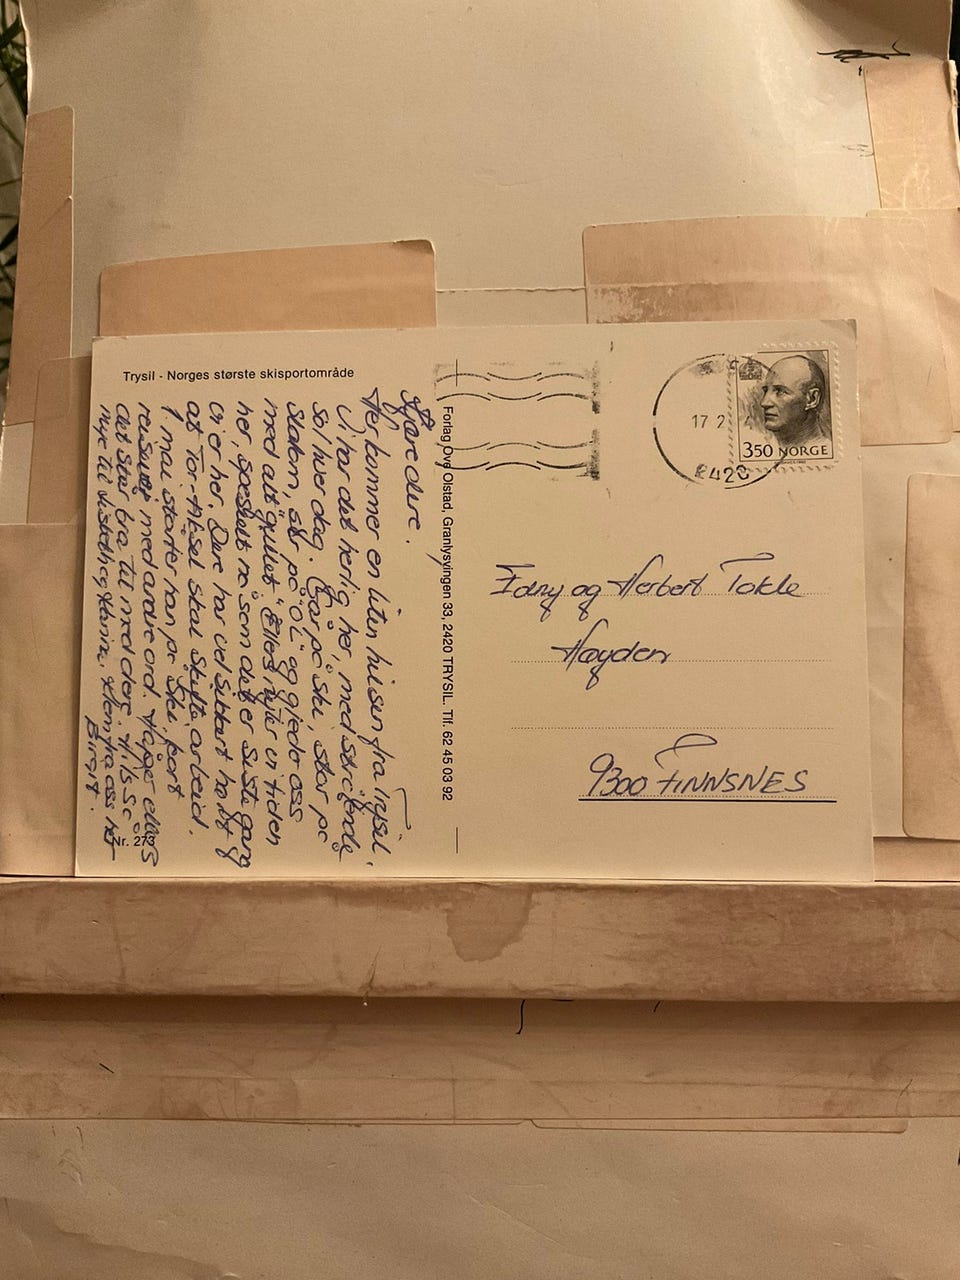 Trysil - Norges største skisportområde
Kjære dere.
Her kommer en liten hilsen fra Trysil.
Vi har det herlig her, med strålende
sol hver dag. Går på ski, står på
slalom, slår på "ØL" og gjeder oss
med alt "gullet" Ellers nyter vi tiden
her, spesielt nå som det er siste gang
vi er her. Dere har vel sikkert hørt
at Tor-Aksel skal skifte arbeid.
1 mai starter han på Ski, kort
reisevei med andre ord. Håper ellers
det står bra til med dere. Hils så
mye til Lisbeth og Hanna. Klem fra oss
Birgit.
Nr. 273
Forlag Ove Olstad, Granlysvingen 33, 2420 TRYSIL. Tlf. 62 45 03 92
17 2
2420
350 NORGE
og Herbert Tokle
Høyden
9300 FINNSNES